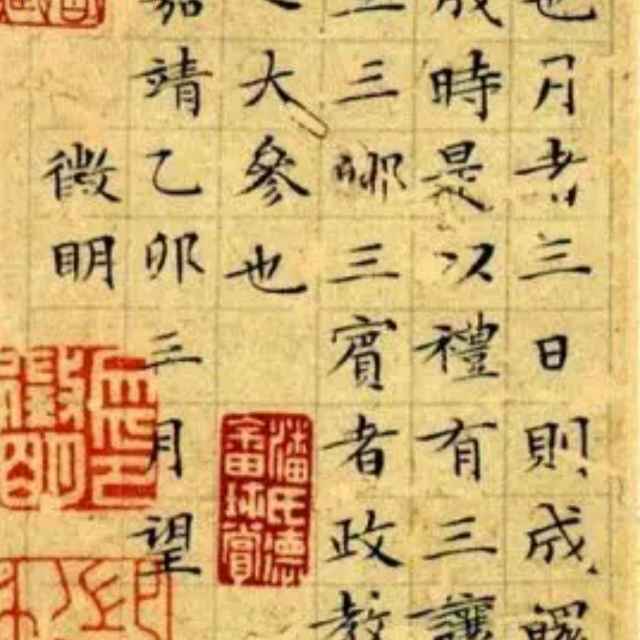 也月者三日則成魄
成時是以禮有三讓
立三卿三賓者政教
之大參也
嘉靖乙卯三月望
徵明
潘氏德
畬珍賞